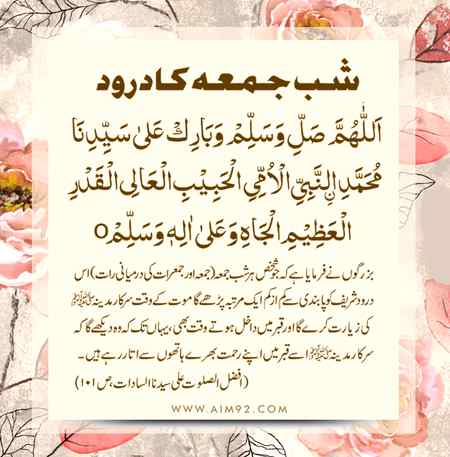 شب جمعہ کا درود
اَللّٰهُمَّ صَلِّ وَسَلِّمْ وَبَارِكْ عَلىٰ سَيِّدِنَا
مُحَمَّدِ اِلنَّبِيِّ الْاُمِّيِّ الْحَبِيْبِ الْعَالِى الْقَدْرِ
الْعَظِيْمِ الْجَاهِ وَعَلىٰ اٰلِهٖ وَسَلِّمْ o
بزرگوں نے فرمایا ہے کہ جو شخص ہر شب جمعہ (جمعہ اور جمعرات کی درمیانی رات) اس
درود شریف کو پابندی سے کم از کم ایک مرتبہ پڑھے گا موت کے وقت سرکار مدینہ ﷺ
کی زیارت کرے گا اور قبر میں داخل ہوتے وقت بھی، یہاں تک کہ وہ دیکھے گا کہ
سرکار مدینہ ﷺ اسے قبر میں اپنے رحمت بھرے ہاتھوں سے اتار رہے ہیں۔
(افضل الصلوت علی سیدنا السادات، ص ۱۰۱)
WWW.AIM92.COM